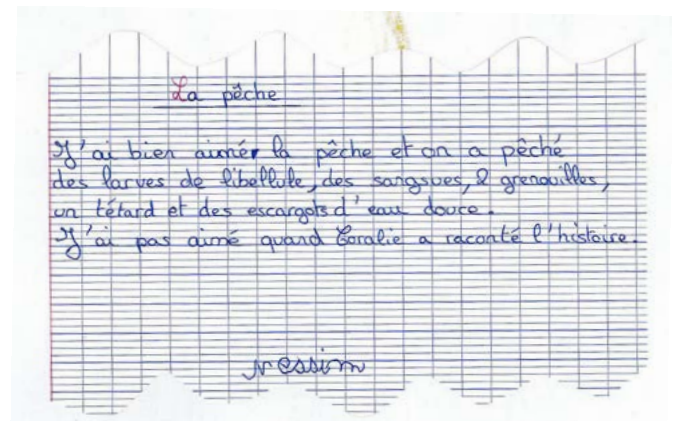 La pêche
J'ai bien aimér la pêche et on a pêché
des larves de libellule, des sangsues, 2 grenouilles,
un tétard et des escargots d'eau douce.
J'ai pas aimé quand Coralie a raconté l'histoire.
Nessim